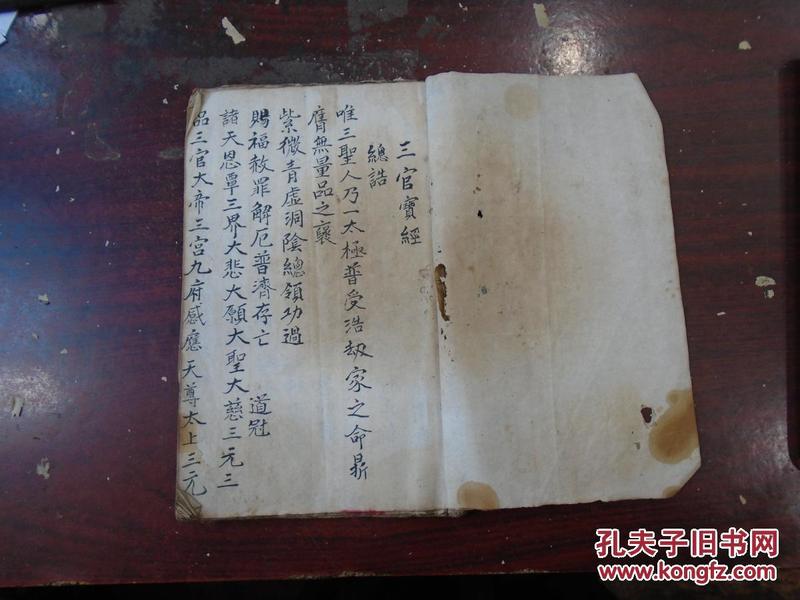 三官寶經
總誥
唯三聖人乃一太極普受浩劫家之命鼎
膺無量品之褒
紫微青虛洞陰總領功過
賜福赦罪解厄普濟存亡 道冠
諸天恩覃三界大悲大願大聖大慈三元三
品三官大帝三宫九府感應天尊太上三元
孔夫子旧书网
www.kongfz.com